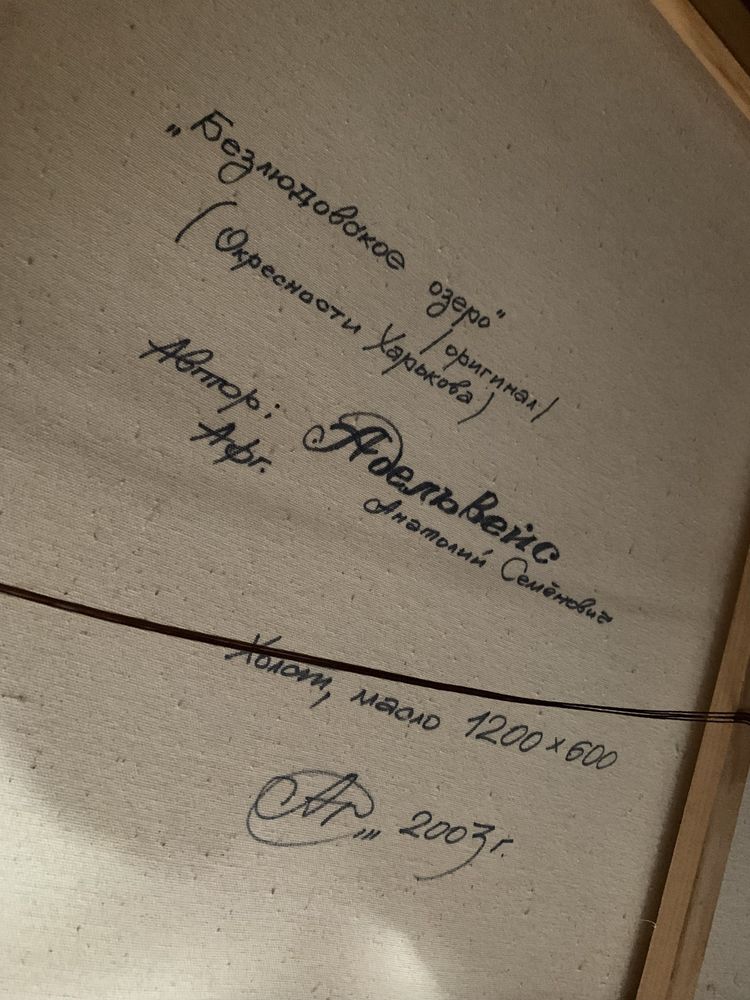 „Безлюдовское озеро"
/оригинал/
(Окресности Харькова)
Автор: Адельвейс
Афг.
Анатолий Семёнович
Холст, масло 1200×600
2003г.